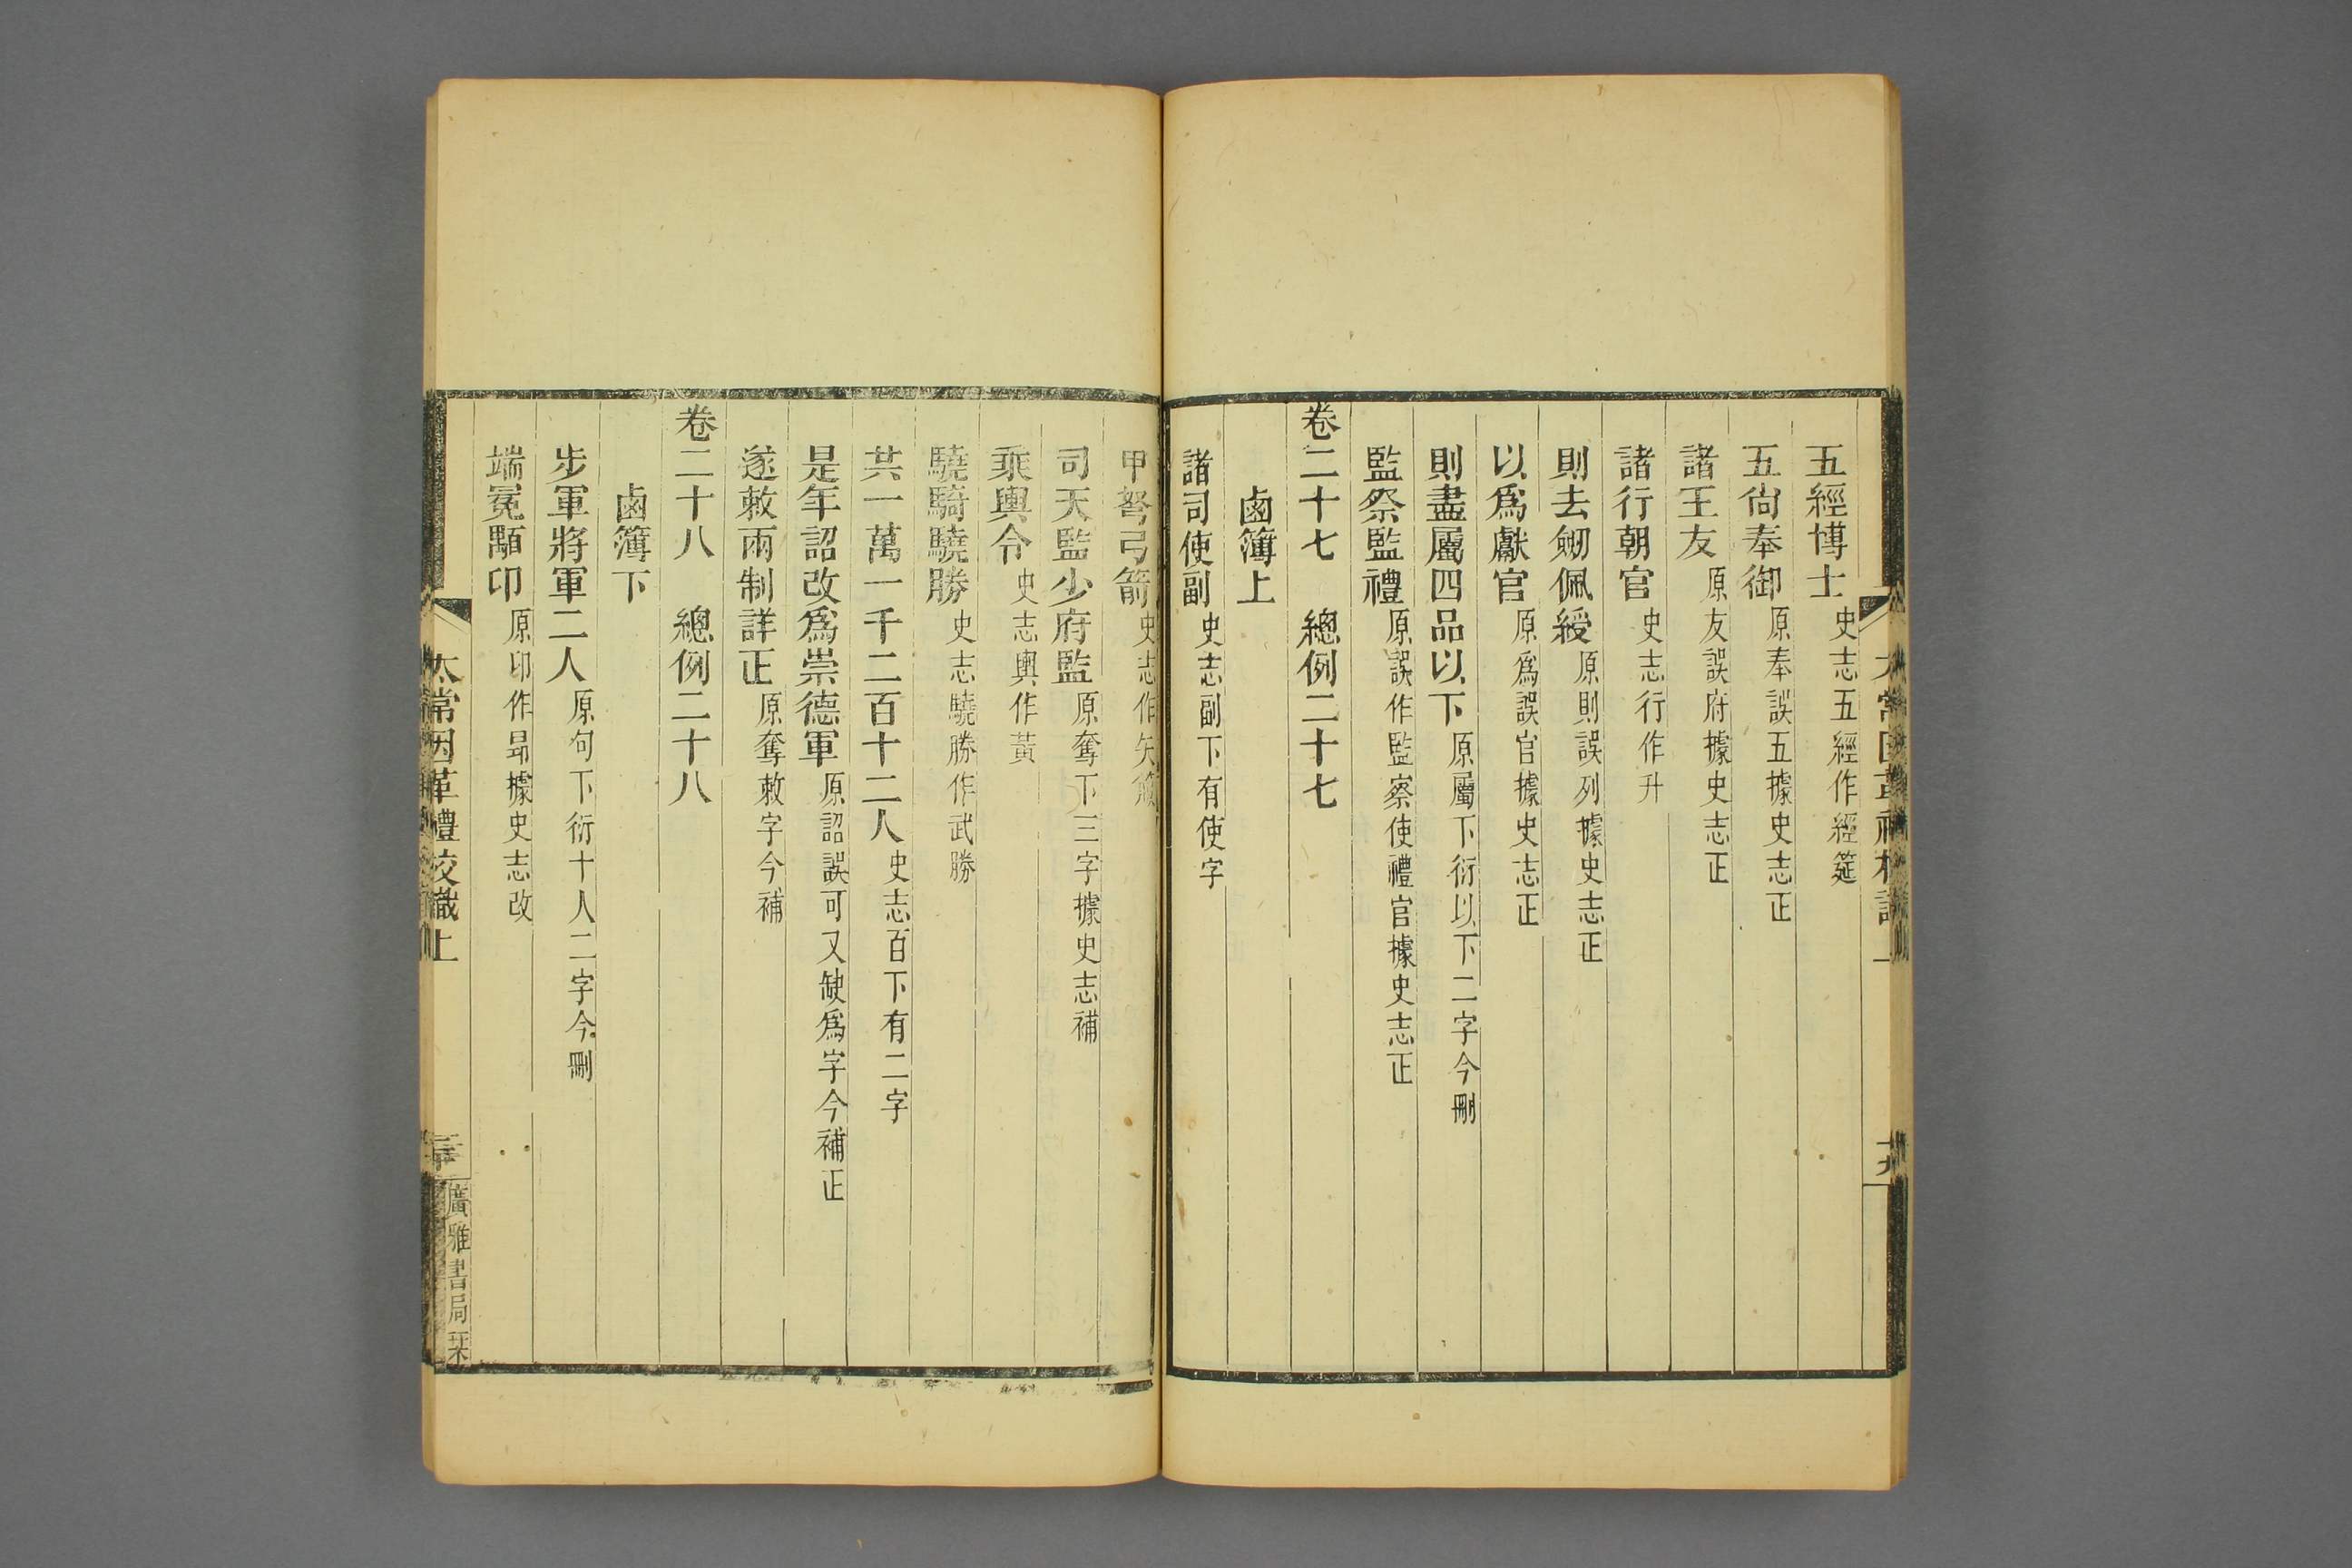 五經博士史志五經作經筵
五尙奉御原奉誤五據史志正
諸王友原友誤府據史志正
諸行朝官史志行作升
則去劒佩綬原則誤列據史志正
以爲獻官原爲誤官據史志正
則盡屬四品以下原屬下衍以下二字今刪
監祭監禮原誤作監察使禮官據史志正
卷二十七 總例二十七
鹵簿上
諸司使副史志副下有使字
甲弩弓箭史志作矢箙
司天監少府監原奪下三字據史志補
乘輿令史志輿作黃
驍騎驍勝史志驍勝作武勝
共一萬一千二百十二人史志百下有二字
是年詔改爲崇德軍原詔誤可又缺爲字今補正
遂敕兩制詳正原奪敕字今補
卷二十八 總例二十八
鹵簿下
步軍將軍二人原句下衍十人二字今刪
端冕顒卬原卬作昂據史志改
太常因革禮校識上
廣雅書局栞